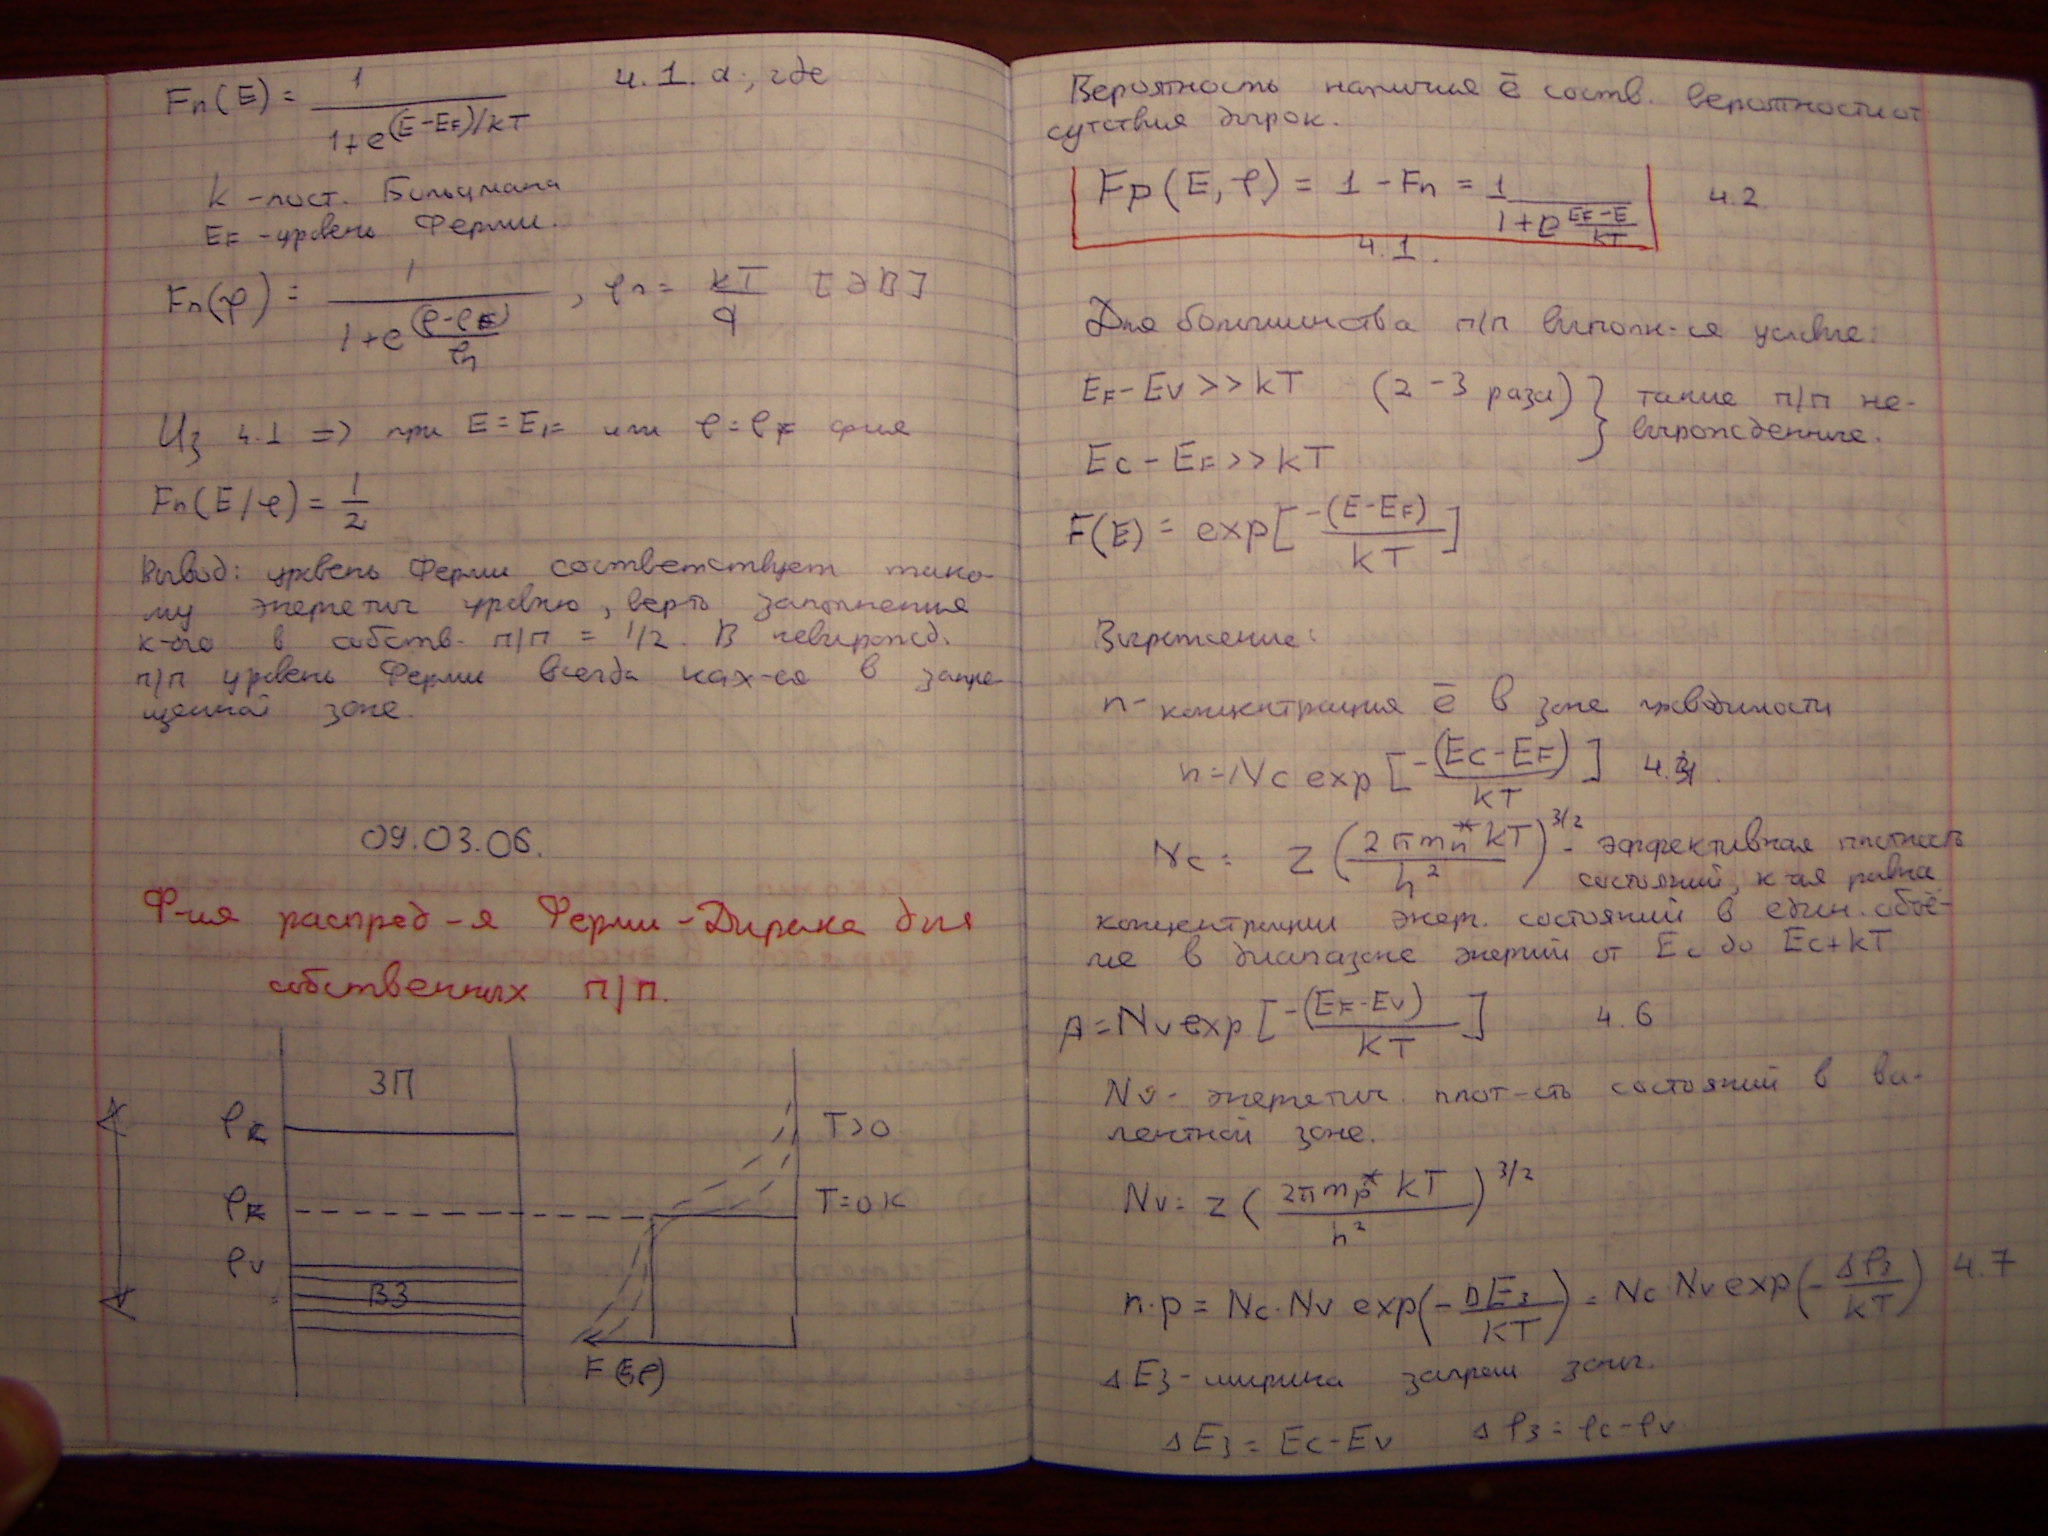 Fn(E) = 1 / (1+e^((E-EF)/kT)) 4.1.а, где
k - пост. Больцмана
EF - уровень Ферми.
Fn(φ) = 1 / (1+e^((φ-φF)/φn)), φn = kT/q [эВ]
Из 4.1 => при E=EF или φ=φF ф-ия
Fn(E/φ) = 1/2
Вывод: уровень Ферми соответствует тако-
му энергетич уровню, вер-ть заполнения
к-ого в собств. п/п = 1/2. В невырожд.
п/п уровень Ферми всегда нах-ся в запре-
щенной зоне.
09.03.06.
Ф-ия распред-я Ферми-Дирака для
собственных п/п.
ЗП
φc
T>0
φF
T=0K
φv
ВЗ
F(E,φ)
Вероятность наличия ē соотв. вероятности от
сутствия дырок.
Fp(E,φ) = 1 - Fn = 1 / (1+e^((EF-E)/kT)) 4.2
4.1.
Для большинства п/п выполн-ся условие:
EF-Ev>>kT (2-3 раза) } такие п/п не-
вырожденные.
Ec-EF>>kT
F(E) = exp[-(E-EF)/kT]
Выражение:
n- концентрация ē в зоне проводимости
n=Nc exp[-(Ec-EF)/kT] 4.
Nc = 2(2πmn*kT/h²)^3/2 - эффективная плотность
состояний, к-ая равна
концентрации энерг. состояний в един. объё-
ме в диапазоне энергий от Ec до Ec+kT
p=Nv exp[-(EF-Ev)/kT] 4.6
Nv - энергетич. плот-сть состояний в ва-
лентной зоне.
Nv = 2(2πmp*kT/h²)^3/2
n·p = Nc·Nv exp(-ΔEз/kT) = Nc·Nv exp(-Δφз/kT) 4.7
ΔEз - ширина запрещ зоны.
ΔEз = Ec-Ev Δφз = φc-φv